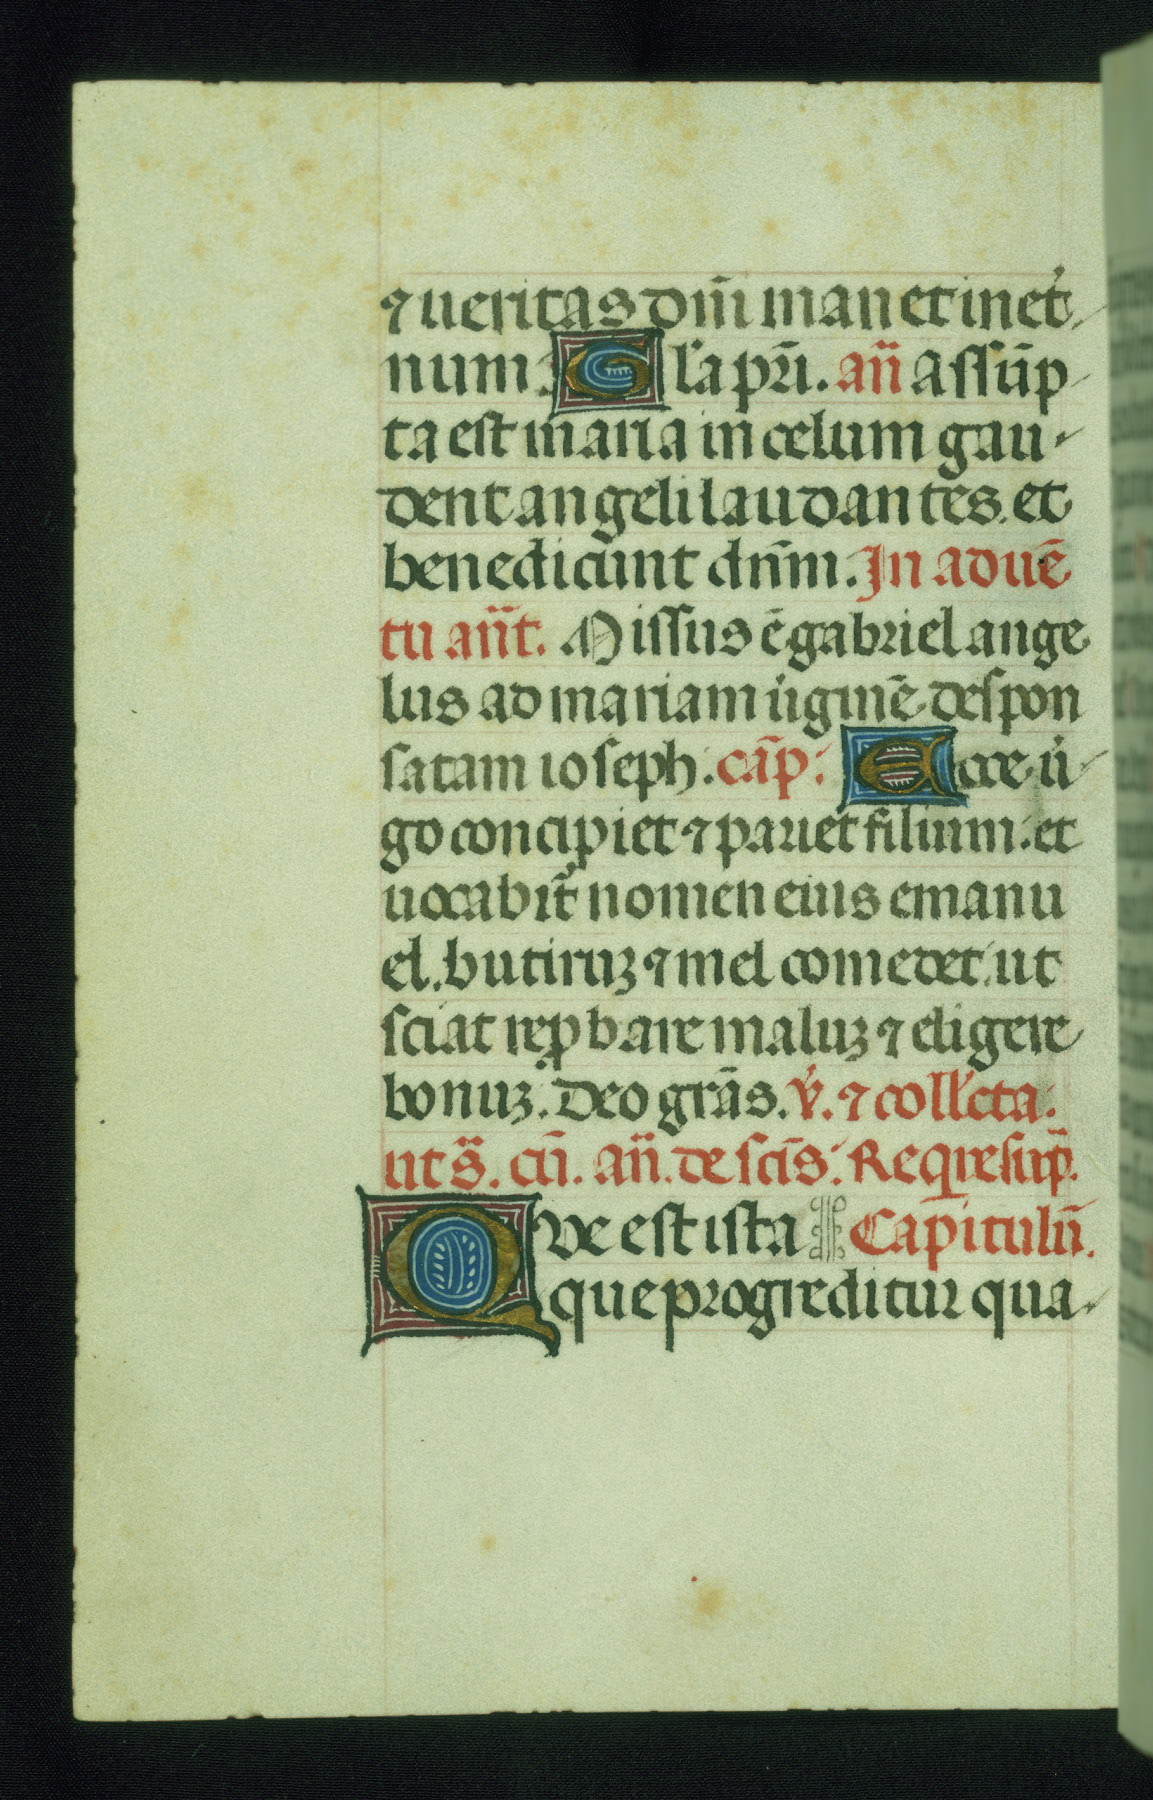 ⁊ ueritas dn̄i manet in et̾
num: Gl'a pr̄i. an̄ assūp
ta est maria in celum gau-
dent angeli laudantes. et
benedicunt dn̄m. In aduē
tu an̄t. Missus ē gabriel ange
lus ad mariam u̾ginē despon
satam ioseph. cāp: Ecce ui̾-
go concipiet ⁊ pariet filium. et
uocabit̾ nomen eius emanu
el. butiruꝫ ⁊ mel comedet. ut
sciat repꝓbare maluꝫ ⁊ eligere
bonuꝫ. Deo grās. v̾. ⁊ coll'cta.
ut s̄. cū. an̄. de scīs. Reqire sup̄.
QVe est ista Capitulū.
que progreditur qua-